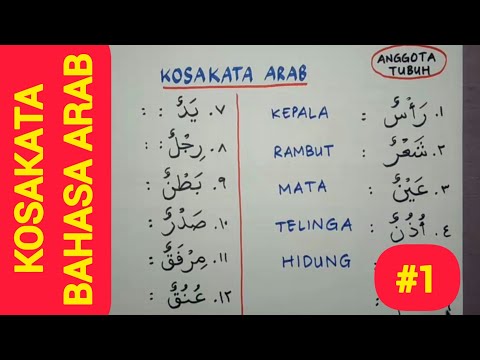 KOSAKATA
BAHASA ARAB
KOSAKATA ARAB
ANGGOTA
TUBUH
١. رَأْسٌ : KEPALA
٢. شَعْرٌ : RAMBUT
٣. عَيْنٌ : MATA
٤. أُذُنٌ : TELINGA
: HIDUNG
٧. يَدٌ : :
٨. رِجْلٌ : :
٩. بَطْنٌ :
١٠. صَدْرٌ :
١١. مِرْفَقٌ :
١٢. عُنُقٌ :
#1